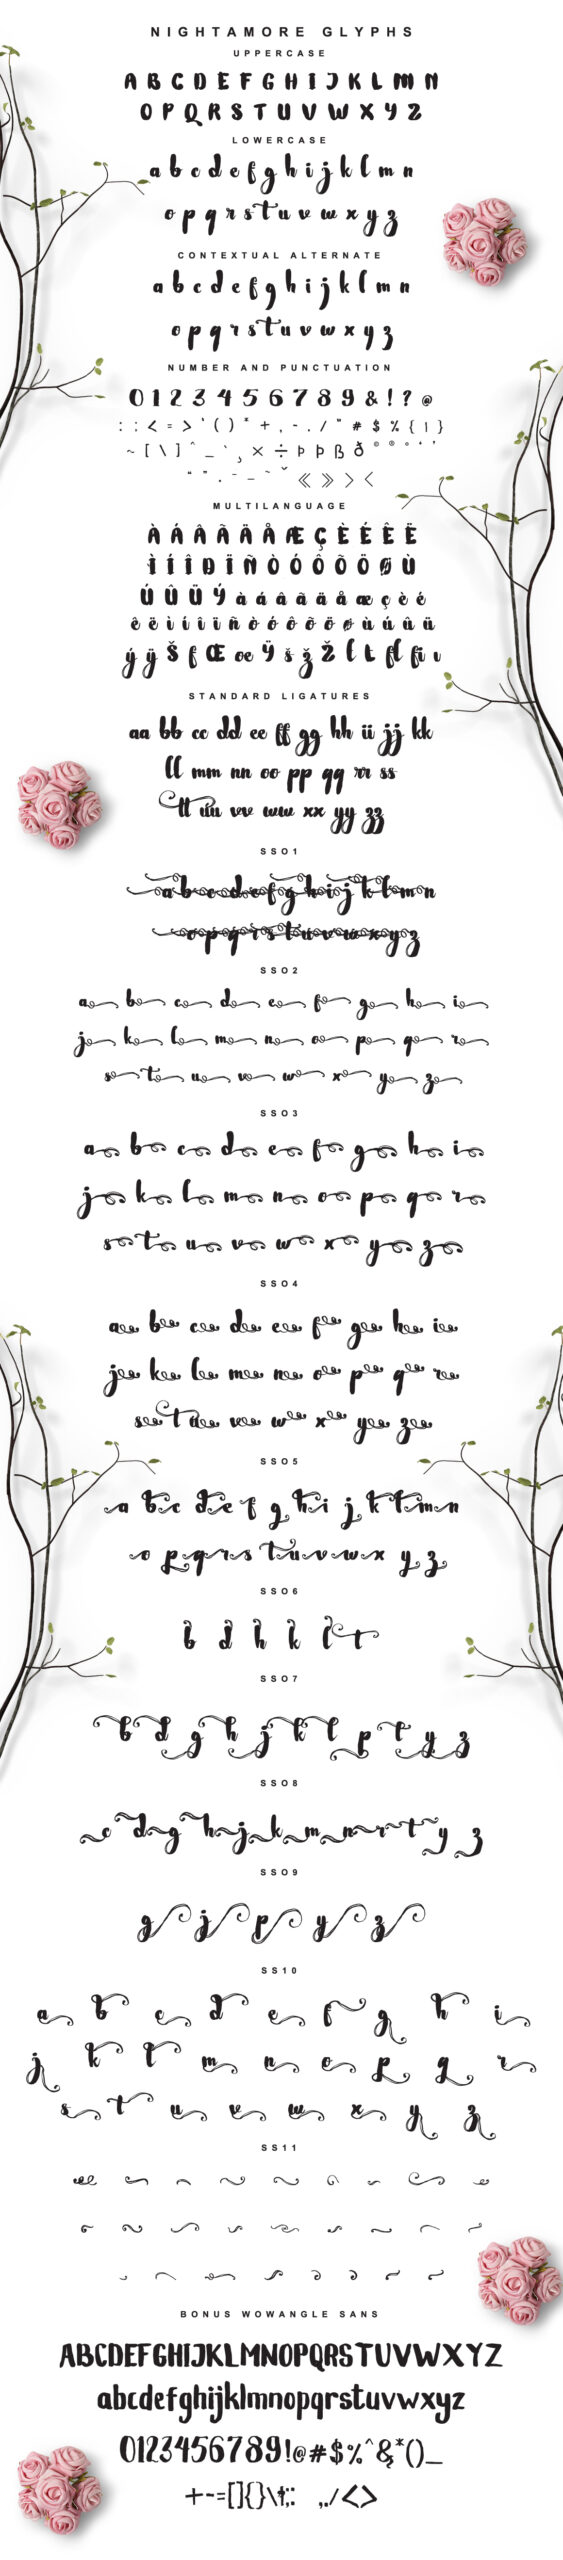 NIGHTAMORE GLYPHS
UPPERCASE
A B C D E F G H I J K L M N
O P Q R S T U V W X Y Z
LOWERCASE
a b c d e f g h i j k l m n
o p q r s t u v w x y z
CONTEXTUAL ALTERNATE
a b c d e f g h i j k l m n
o p q r s t u v w x y z
NUMBER AND PUNCTUATION
0 1 2 3 4 5 6 7 8 9 & ! ? @
: ; < = > ' ( ) * + , - . / " # $ % { | }
MULTILANGUAGE
À Á Â Ã Ä Å Æ Ç È É Ê Ë
Ì Í Î Đ Ï Ñ Ò Ó Ô Õ Ö Ø Ù
Ú Û Ü Ý à á â ã ä å æ ç è é
ê ë ì í î ï ñ ò ó ô õ ö ø ù ú û ü
STANDARD LIGATURES
aa bb cc dd ee ff gg hh ii jj kk
ll mm nn oo pp qq rr ss
tt uu vv ww xx yy zz
SS01
a b c d e f g h i j k l m n
o p q r s t u v w x y z
SS02
a b c d e f g h i
j k l m n o p q r
s t u v w x y z
SS03
a b c d e f g h i
j k l m n o p q r
s t u v w x y z
SS04
a b c d e f g h i
j k l m n o p q r
s t u v w x y z
SS05
a b c d e f g h i j k l m n
o p q r s t u v w x y z
SS06
b d h k l t
SS07
b d g h j k l p t y z
SS08
c d g h j k m n r t y z
SS09
g j p y z
SS10
a b c d e f g h i
j k l m n o p q r
s t u v w x y z
SS11
BONUS WOWANGLE SANS
ABCDEFGHIJKLMNOPQRSTUVWXYZ
abcdefghijklmnopqrstuvwxyz
0123456789!@#$%^&*()_